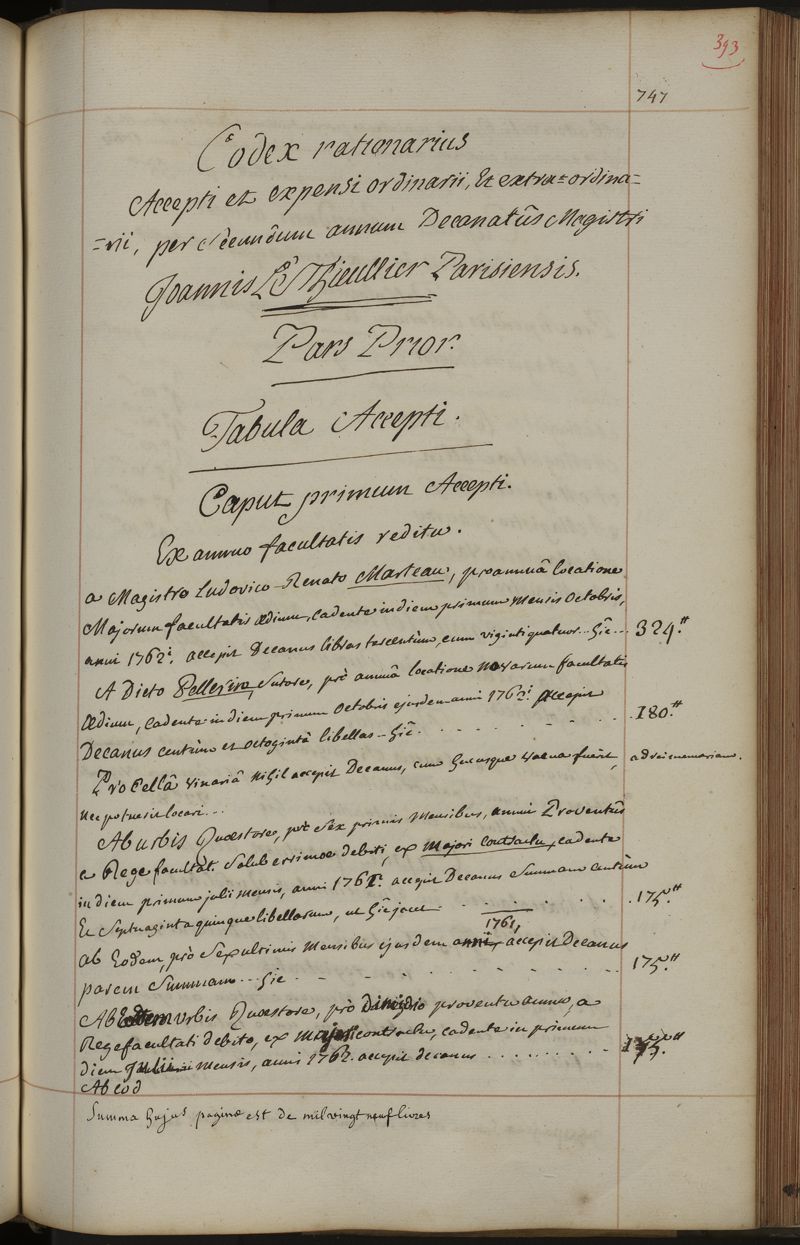 393
747
Codex rationarius
Accepti et expensi ordinarii, Et extra=ordina=
=rii, per secundum annum Decanatûs Magistri
Joannis Le Thieullier Parisiensis.
Pars Prior.
Tabula Accepti.
Caput primum Accepti.
Ex annuo facultatis reditu.
a Magistro Ludovico-Renato Marteau, pro annuâ locatione
Majorum facultatis ædium, cadente in diem primum mensis octobris,
anni 1762i. accepit Decanus libras tercentùm, cum viginti quatuor... hîc... 324.tt
A Dicto Pellerin, sutore, prò annuâ locatione novarum facultatis
Ædium, cadente in diem primum octobris ejusdem anni 1762i. accepit
Decanus centùm et octogintà libellas - hîc. . . . . . . . 180.tt
Pro Cellâ vinariâ nihil accepit Decanus, cum hucusque vacua fuerit,
nec potuerit locari...
Ab urbis Quæstore, prò sex primis mensibus, annui Proventûs
a Rege facultat. Saluberrimæ debiti, ex majori contractu, cadente
in diem primum julii mensis, anni 1761. accepit Decanus summam centùm
Et septuaginta quinque libellarum, ut hîc jacet . . . . . . 175.tt
1761,
ab Eodem, prò sex ultimis mensibus ejusdem anni, accepit Decanus
parem summam... hîc . . . . . . . . 175.tt
Ab Eodem urbis Quæstore, prò dimidio proventu annuo, a
Rege facultati debito, ex majori contractu, cadente in primum
diem Julii mensis, anni 1762. accepit decanus . . . . . . . . . 175.tt
Ab eod
Summa hujus paginæ est de mil vingt neuf livres